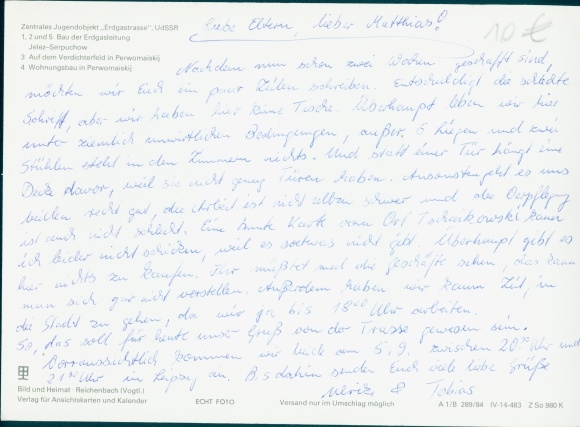 Zentrales Jugendobjekt „Erdgastrasse", UdSSR
1, 2 und 5 Bau der Erdgasleitung
Jelez–Serpuchow
3 Auf dem Verdichterfeld in Perwomaiskij
4 Wohnungsbau in Perwomaiskij
Liebe Eltern, lieber Matthias!
10 €
Nachdem nun schon zwei Wochen geschafft sind,
möchten wir Euch ein paar Zeilen schreiben. Entschuldigt die schlechte
Schrift, aber wir haben hier keine Tische. Überhaupt leben wir hier
unter ziemlich unwirtlichen Bedingungen, außer 6 Liegen und zwei
Stühlen steht in den Zimmern nichts. Und statt einer Tür hängt eine
Decke davor, weil sie nicht genug Türen haben. Ansonsten geht es uns
beiden recht gut, die Arbeit ist nicht allzu schwer und die Verpflegung
ist auch nicht schlecht. Eine bunte Karte vom Ort kann
ich leider nicht schicken, weil es soetwas nicht gibt. Überhaupt gibt es
hier nichts zu kaufen. Ihr müßtet mal die Geschäfte sehen, das kann
man sich gar nicht vorstellen. Außerdem haben wir kaum Zeit, in
die Stadt zu gehen, da wir ja bis 18⁰⁰ Uhr arbeiten.
So, das soll für heute unser Gruß von der Trasse gewesen sein.
Vorraussichtlich kommen wir am 5.9. zwischen 20³⁰ Uhr und
21³⁰ Uhr in Leipzig an. Bis dahin senden Euch viele liebe Grüße
Ulrike & Tobias
Bild und Heimat Reichenbach (Vogtl.)
Verlag für Ansichtskarten und Kalender
ECHT FOTO
Versand nur im Umschlag möglich
A 1/B 289/84 IV-14-483 Z So 980 K